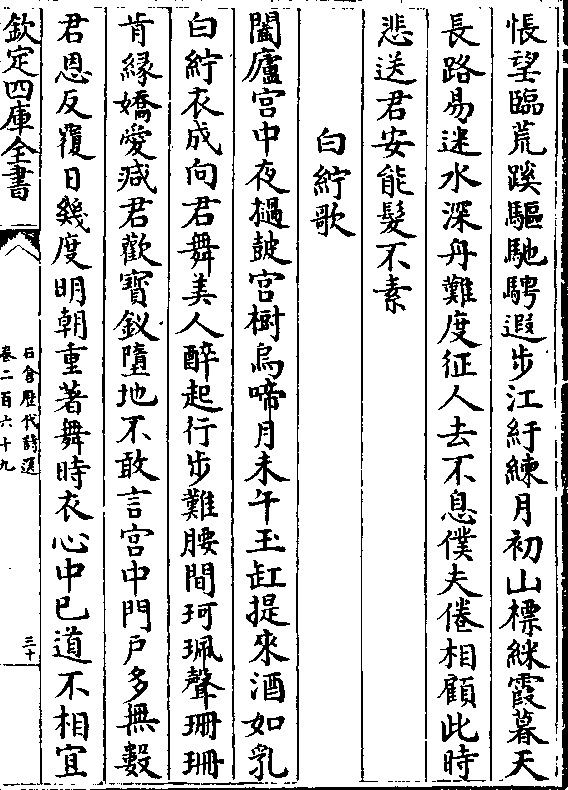 悵望臨荒蹊驅馳騁遐步江紆練月初山標綵霞暮天
長路易迷水深舟難度征人去不息僕夫倦相顧此時
悲送君安能髮不素
白紵歌
闔廬宮中夜撾鼓宮樹烏啼月未午玉缸提來酒如乳
白紵衣成向君舞美人醉起行步難腰間珂珮聲珊珊
肯緣嬌愛減君歡寶釵墮地不敢言宮中門戶多無數
君恩反覆日幾度明朝重著舞時衣心中已道不相宜
欽定四庫全書
石倉歷代詩選
卷二百六十九
三十